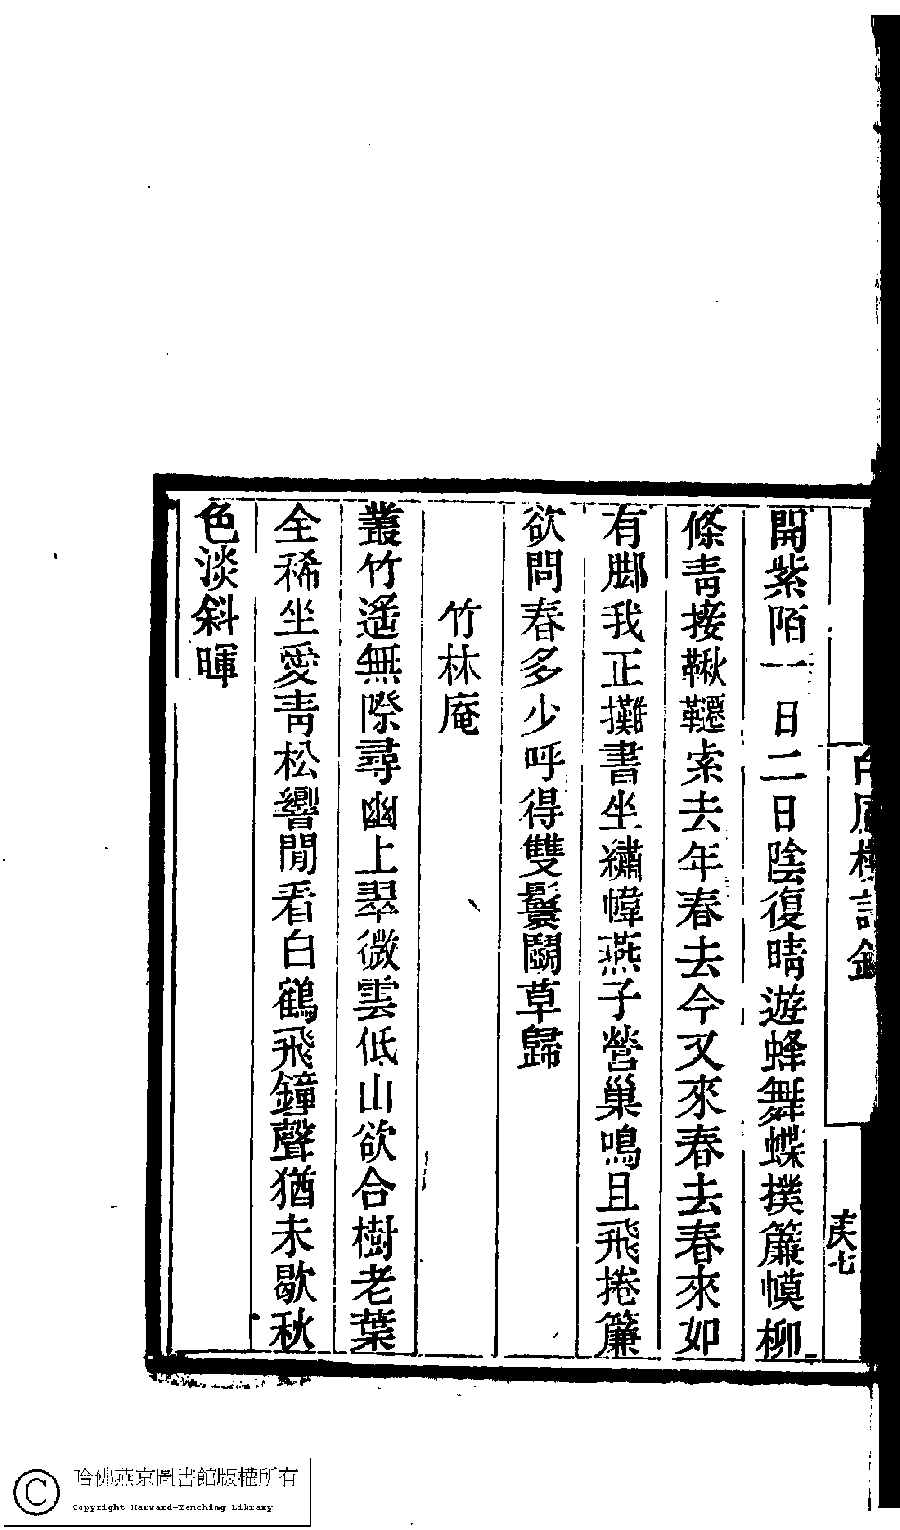 開紫陌一日二日陰復晴遊蜂舞蝶撲簾幙柳
條青接鞦韆索去年春去今又來春去春來如
有脚我正攤書坐繡幃燕子營巢鳴且飛捲簾
欲問春多少呼得雙鬟鬭草歸
竹林庵
叢竹遙無際尋幽上翠微雲低山欲合樹老葉
全稀坐愛青松響閒看白鶴飛鐘聲猶未歇秋
色淡斜暉
哈佛燕京圖書館版權所有
Copyright Harvard-Yenching Library